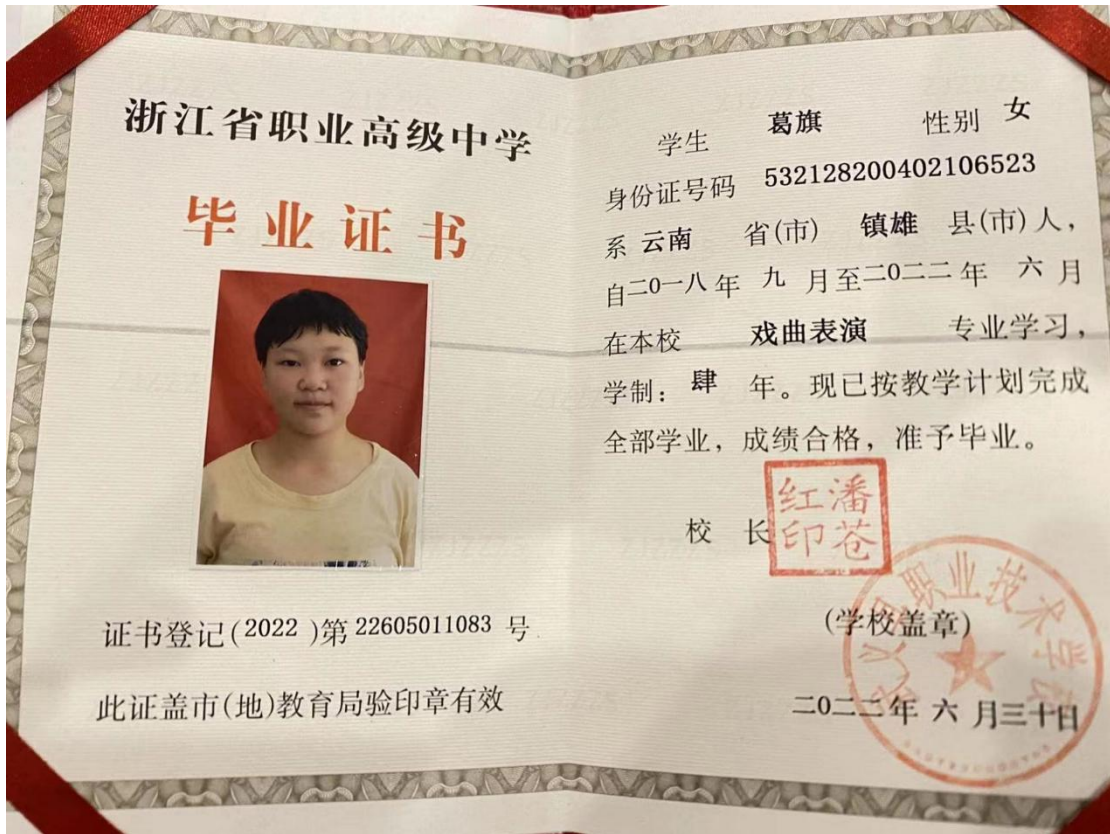 浙江省职业高级中学
毕业证书
证书登记(2022 )第 22605011083 号
此证盖市(地)教育局验印章有效
学生 葛旗 性别 女
身份证号码 532128200402106523
系 云南 省(市) 镇雄 县(市)人，
自二0一八年 九 月至二0二二年 六 月
在本校 戏曲表演 专业学习，
学制：肆 年。现已按教学计划完成
全部学业，成绩合格，准予毕业。
校 长
红潘
印苍
(学校盖章)
武义县职业技术学校
二0二二年 六 月三十日